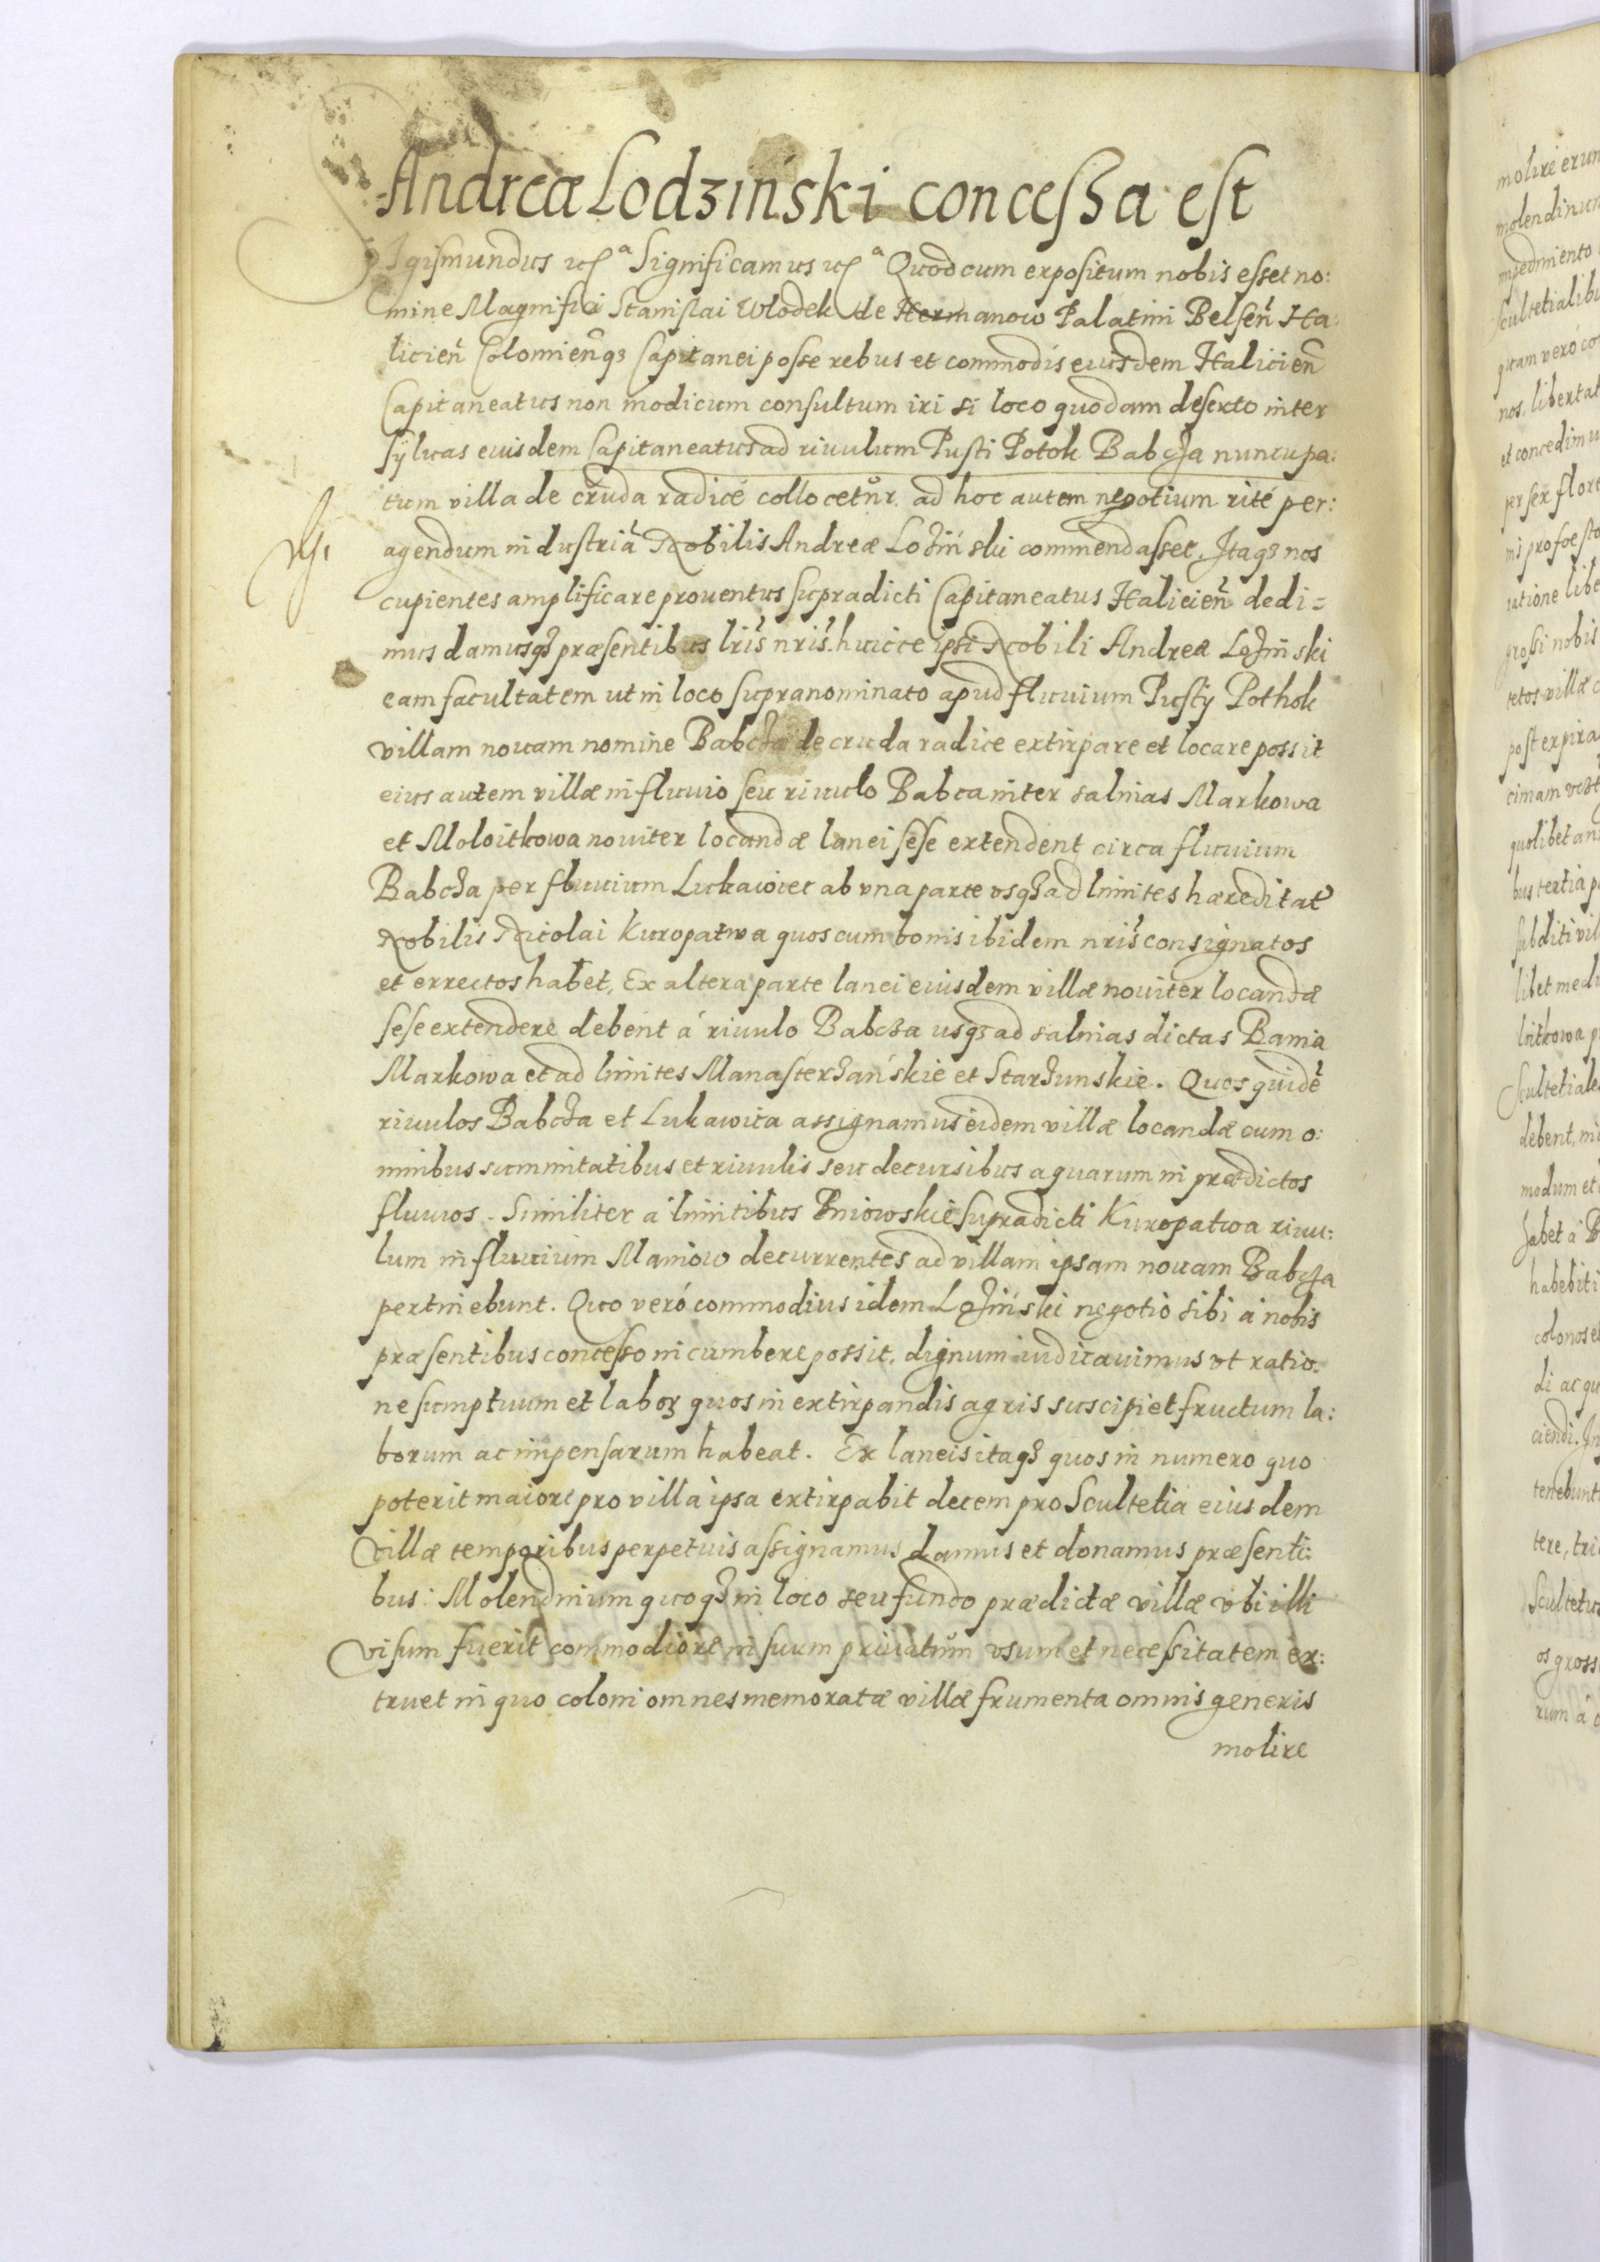 Andreæ Lodziński concessa est
Sigismundus etc̃ᵃ Significamus etc̃ᵃ Quod cum expositum nobis esset no:
mine Magnifici Stanislai Wlodek de Hermanow Palatini Belsen̄ Ha:
licien̄ Colomien̄qȝ Capitanei posse rebus et commodis eiusdem Halicien̄
Capitaneatus non modicum consultum iri si loco quodam deserto inter
sylvas eiusdem Capitaneatus ad rivulum Pusti Potok Babcza nuncupa:
tum villa de cruda radice collocetur ad hoc autem negotium rite per:
agendum industria Nobilis Andreæ Loziński commendasset. Itaqȝ nos
cupientes amplificare proventus supradicti Capitaneatus Halicien̄ dedi=
mus damusqȝ præsentibus lris̄ nris̄ huicce ipsi Nobili Andreæ Loziński
eam facultatem ut in loco supranominato apud fluvium Pusty Pothok
villam novam nomine Babcza de cruda radice extirpare et locare possit
eius autem villæ in fluvio seu rivulo Babca inter salinas Markowa
et Moloitkowa noviter locandæ lanei sese extendent circa fluvium
Babcza per fluvium Lukawiec ab vna parte vsqȝ ad limites hæreditat̄
Nobilis Nicolai Kuropatwa quos cum bonis ibidem nris̄ consignatos
et errectos habet, Ex altera parte lanei eiusdem villæ noviter locandæ
sese extendere debent á rivulo Babcza usqȝ ad salinas dictas Bania
Markowa et ad limites Manasterzańskie et Starzunskie. Quos quidē
rivulos Babcza et Lukawica assignamus eidem villæ locandæ cum o:
mnibus summitatibus et rivulis seu decursibus aquarum in prædictos
fluvios. Similiter á limitibus Pniowskie supradicti Kuropatwa rivu:
lum in fluvium Maniow decurrentes ad villam ipsam novam Babcza
pertinebunt. Quo veró commodius idem Loziński negotio sibi á nobis
præsentibus concesso incumbere possit, dignum iudicavimus vt ratio:
ne sumptuum et laboȝ quos in extirpandis agris suscipiet fructum la:
borum ac impensarum habeat. Ex laneis itaqȝ quos in numero quo
poterit maiore pro villa ipsa extirpabit decem pro Scultetia eiusdem
villæ temporibus perpetuis assignamus damus et donamus præsenti:
bus: Molendinum quoqȝ in loco seu fundo prædictæ villæ vbi illi
visum fuerit commodiore in suum privatum vsum et necessitatem ex:
truet in quo coloni omnes memoratæ villæ frumenta omnis generis
molire